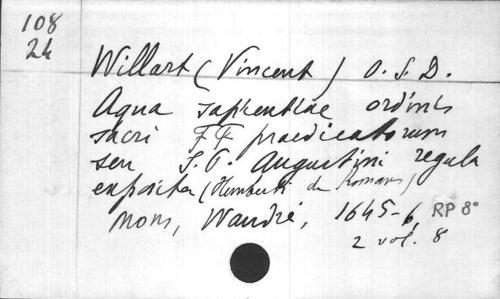 108
24
Willart (Vincent) O. S. D.
Aqua sapientiae ordinis
sacri FF praedicatorum
seu S. P. Augustini regula
exposita (Humberti de Romans)
Mons, Waudré, 1645-6, RP 8°
2 vol. 8